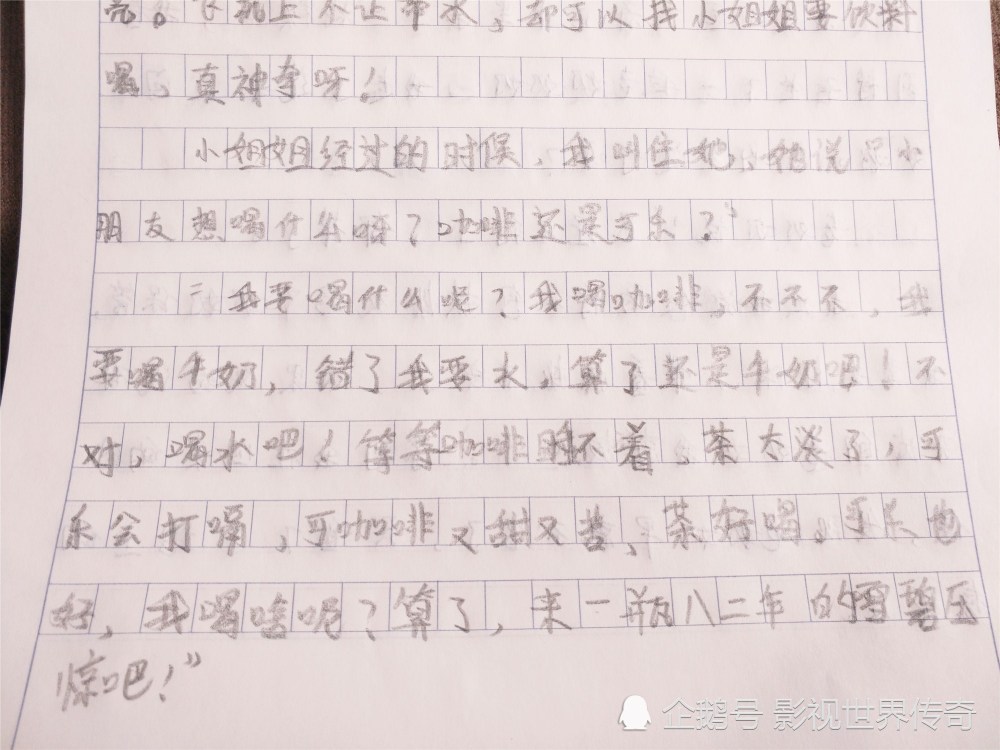 亮。飞机上不让带水，却可以找小姐姐要饮料
喝，真神奇呀！
小姐姐经过的时候，我叫住她，她说：“小
朋友想喝什么呀？咖啡还是可乐？”
“我要喝什么呢？我喝咖啡，不不不，我
要喝牛奶，错了我要水，算了还是牛奶吧！不
对，喝水吧！等等咖啡睡不着，茶太淡了，可
乐会打嗝，可咖啡又甜又苦，茶好喝。可乐也
好，我喝啥呢？算了，来一瓶八二年的雪碧压
惊吧！”
企鹅号 影视世界传奇